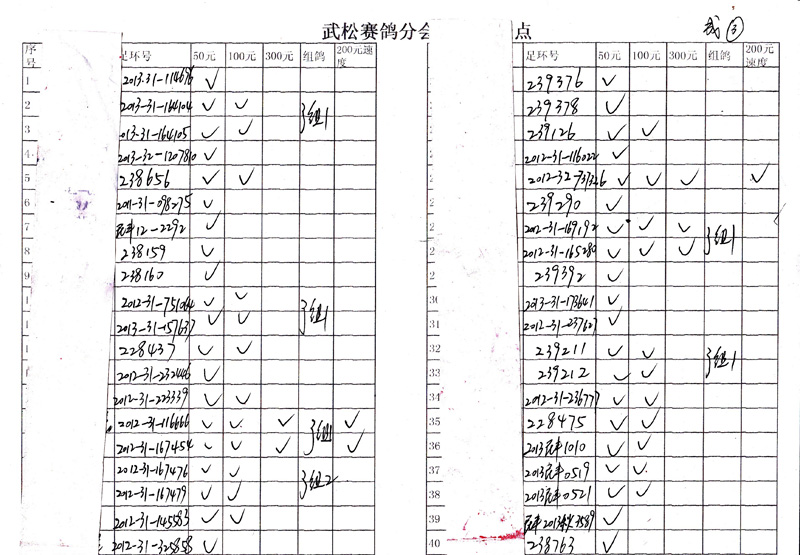 武松赛鸽分会 点
序号 足环号 50元 100元 300元 组鸽 200元速度
1 2013.31-114676 ✓
2 2013-31-164104 ✓ ✓ 组1
3 013-31-164105 ✓ ✓
4 2013-32-1207810 ✓
5 238656 ✓ ✓
6 2011-31-098275 ✓
7 12-2292 ✓
8 238159 ✓
9 238160 ✓
1 2012-31-751064 ✓ ✓ 组1
1 2013-31-157637 ✓ ✓
1 228437 ✓ ✓
2012-31-232446 ✓
2012-31-223339 ✓ ✓
2012-31-116666 ✓ ✓ ✓ 组1 ✓
2012-31-167454 ✓ ✓ ✓ ✓
2012-31-167476 ✓ ✓ 组2
2012-31-167479 ✓ ✓
2012-31-145583 ✓ ✓
2012-31-325858 ✓
③
足环号 50元 100元 300元 组鸽 200元速度
2 239376 ✓
2 239378 ✓
2 239126 ✓ ✓
2 2012-31-116022 ✓
2 2012-32- ✓ ✓ ✓ ✓
2 239290 ✓
2 2012-31-169192 ✓ ✓ ✓ 组1
2 2012-31-165280 ✓ ✓ ✓
2 239392 ✓
30 2013-31-173641 ✓
31 2012-31-237627 ✓
32 239211 ✓ ✓ 组1
33 239212 ✓ ✓
34 2012-31-236777 ✓ ✓
35 228475 ✓ ✓
36 2013 1010 ✓ ✓
37 2013 0519 ✓ ✓
38 2013 0521 ✓ ✓
39 2013 3589 ✓
40 238763 ✓